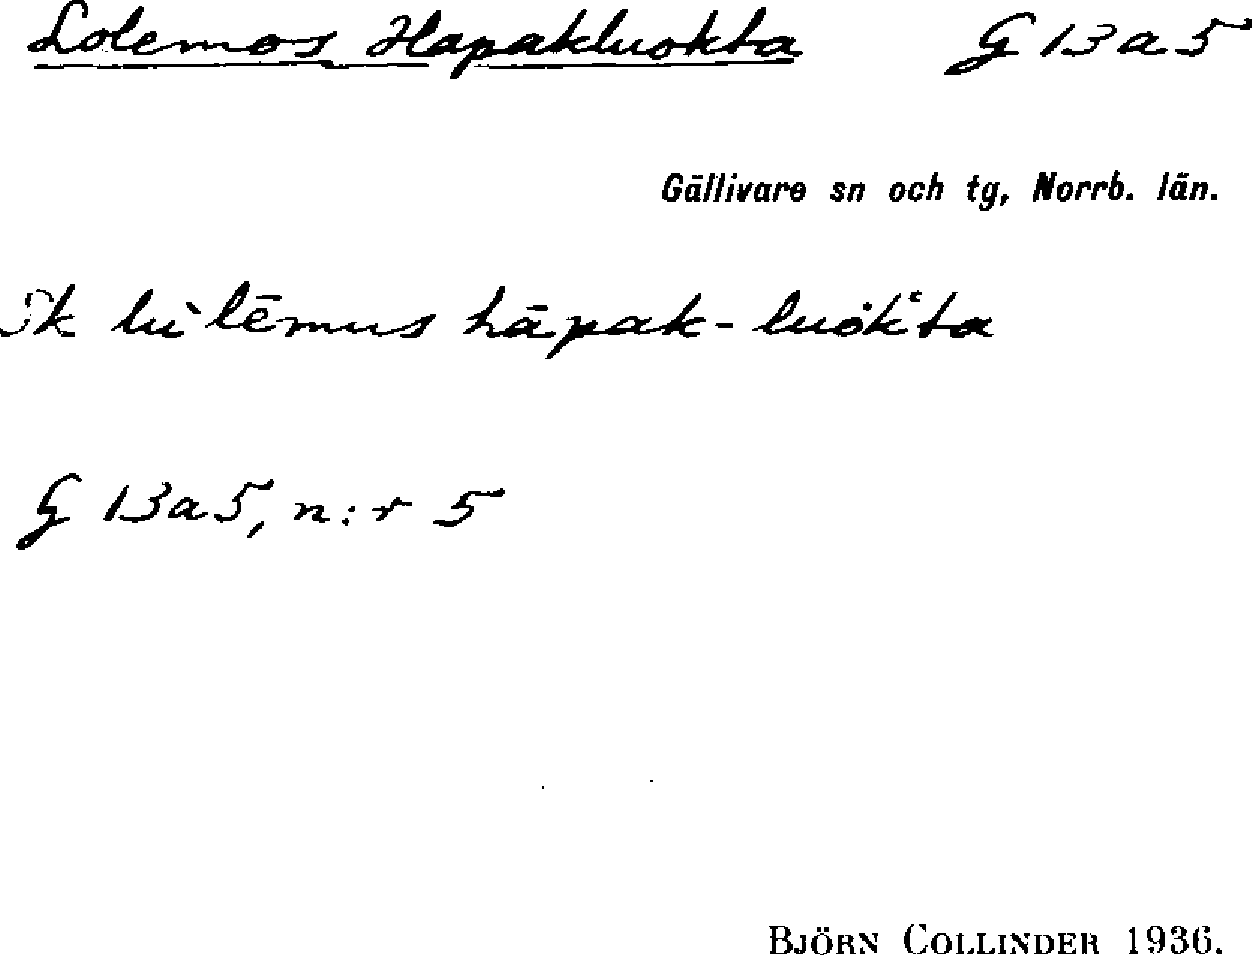 Lolemos Hapakluokta G 13 a 5
Gällivare sn och tg, Norrb. län.
Sk lu`lēmus hāpak-luok'ta
G 13a5, n:r 5
BJÖRN COLLINDER 1936.